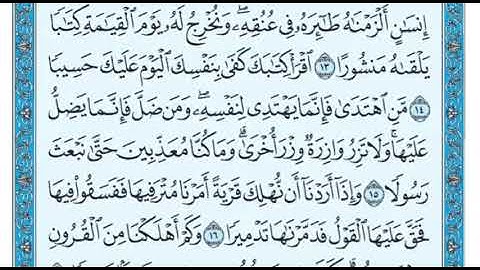 إِنسَٰنٍ أَلْزَمْنَٰهُ طَٰٓئِرَهُۥ فِى عُنُقِهِۦ ۖ وَنُخْرِجُ لَهُۥ يَوْمَ ٱلْقِيَٰمَةِ كِتَٰبًا
يَلْقَىٰهُ مَنشُورًا ١٣ ٱقْرَأْ كِتَٰبَكَ كَفَىٰ بِنَفْسِكَ ٱلْيَوْمَ عَلَيْكَ حَسِيبًا
١٤ مَّنِ ٱهْتَدَىٰ فَإِنَّمَا يَهْتَدِى لِنَفْسِهِۦ ۖ وَمَن ضَلَّ فَإِنَّمَا يَضِلُّ
عَلَيْهَا ۚ وَلَا تَزِرُ وَازِرَةٌ وِزْرَ أُخْرَىٰ ۗ وَمَا كُنَّا مُعَذِّبِينَ حَتَّىٰ نَبْعَثَ
رَسُولًا ١٥ وَإِذَآ أَرَدْنَآ أَن نُّهْلِكَ قَرْيَةً أَمَرْنَا مُتْرَفِيهَا فَفَسَقُوا۟ فِيهَا
فَحَقَّ عَلَيْهَا ٱلْقَوْلُ فَدَمَّرْنَٰهَا تَدْمِيرًا ١٦ وَكَمْ أَهْلَكْنَا مِنَ ٱلْقُرُونِ